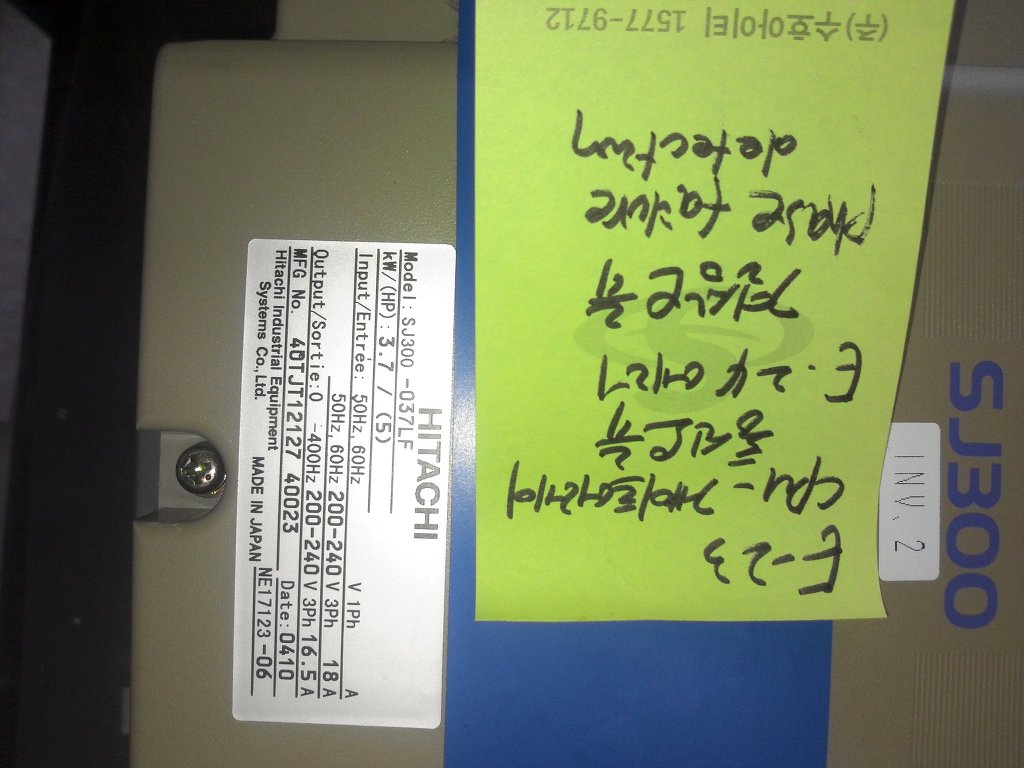 HITACHI
Model: SJ300 -037LF
kW/(HP): 3.7 / (5)
Input/Entrée: 50Hz, 60Hz V 1Ph A
50Hz, 60Hz 200-240 V 3Ph 18 A
Output/Sortie: 0 -400Hz 200-240 V 3Ph 16.5 A
MFG No. 40TJT12127 40023 Date: 0410
Hitachi Industrial Equipment
Systems Co., Ltd. MADE IN JAPAN NE17123-06
E-23
CPU-게이트어레이
E.24 에러
phase failure
detection
(주)수호아이티 1577-9712
INV. 2
SJ300